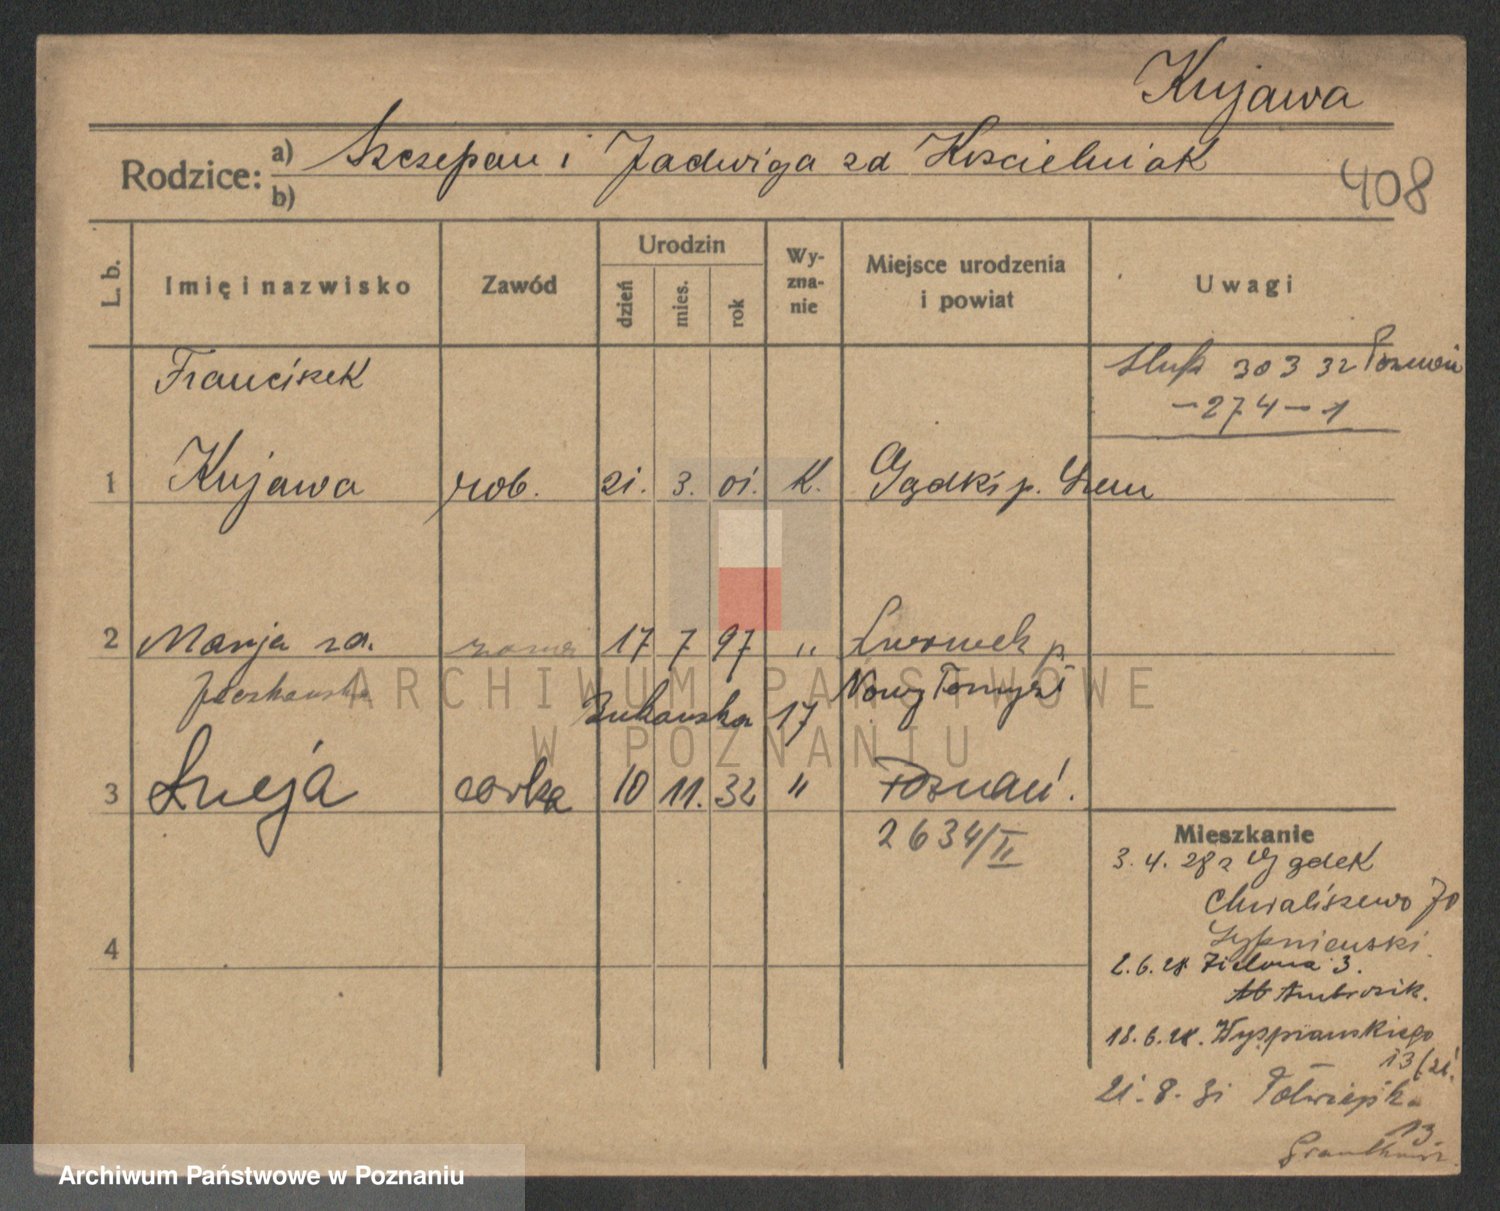 Kujawa
Rodzice: a) Szczepan i Jadwiga zd Kościelniak
b)
408
L. b. Imię i nazwisko Zawód Urodzin dzień mies. rok Wy-zna-nie Miejsce urodzenia i powiat Uwagi
Franciszek
303 32 Poznań
-274-1
1 Kujawa rob. 21. 3. 01. K. Gądki p. Śrem
2 Marja za. 17 7 97 " Lwówek p
Nowy Tomyśl
Bukowska 17
3 Łucja córka 10 11. 32 " Poznań.
2634/II
Mieszkanie
3. 4. 28 z Gądek
Chwaliszewo 70
4
2.6.28 Zielona 3.
Ambrozik.
18.6.28. Wyspiańskiego
13/21
21. 8. 31 Półwiejska
13
ARCHIWUM PAŃSTWOWE
W POZNANIU
Archiwum Państwowe w Poznaniu